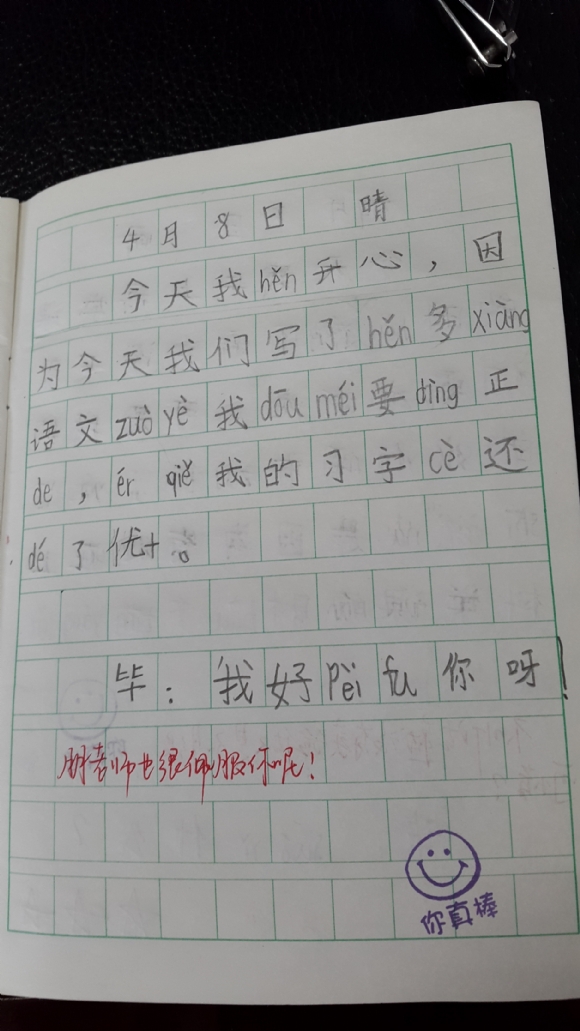 4月8日 晴
今天我hěn开心，因
为今天我们写了hěn多xiàng
语文zuò yè我dōu méi要dìng正
de，ér qiě我的习字cè还
dé了优+。
毕：我好Pèi fu你呀！
胡老师也很佩服你呢！
你真棒